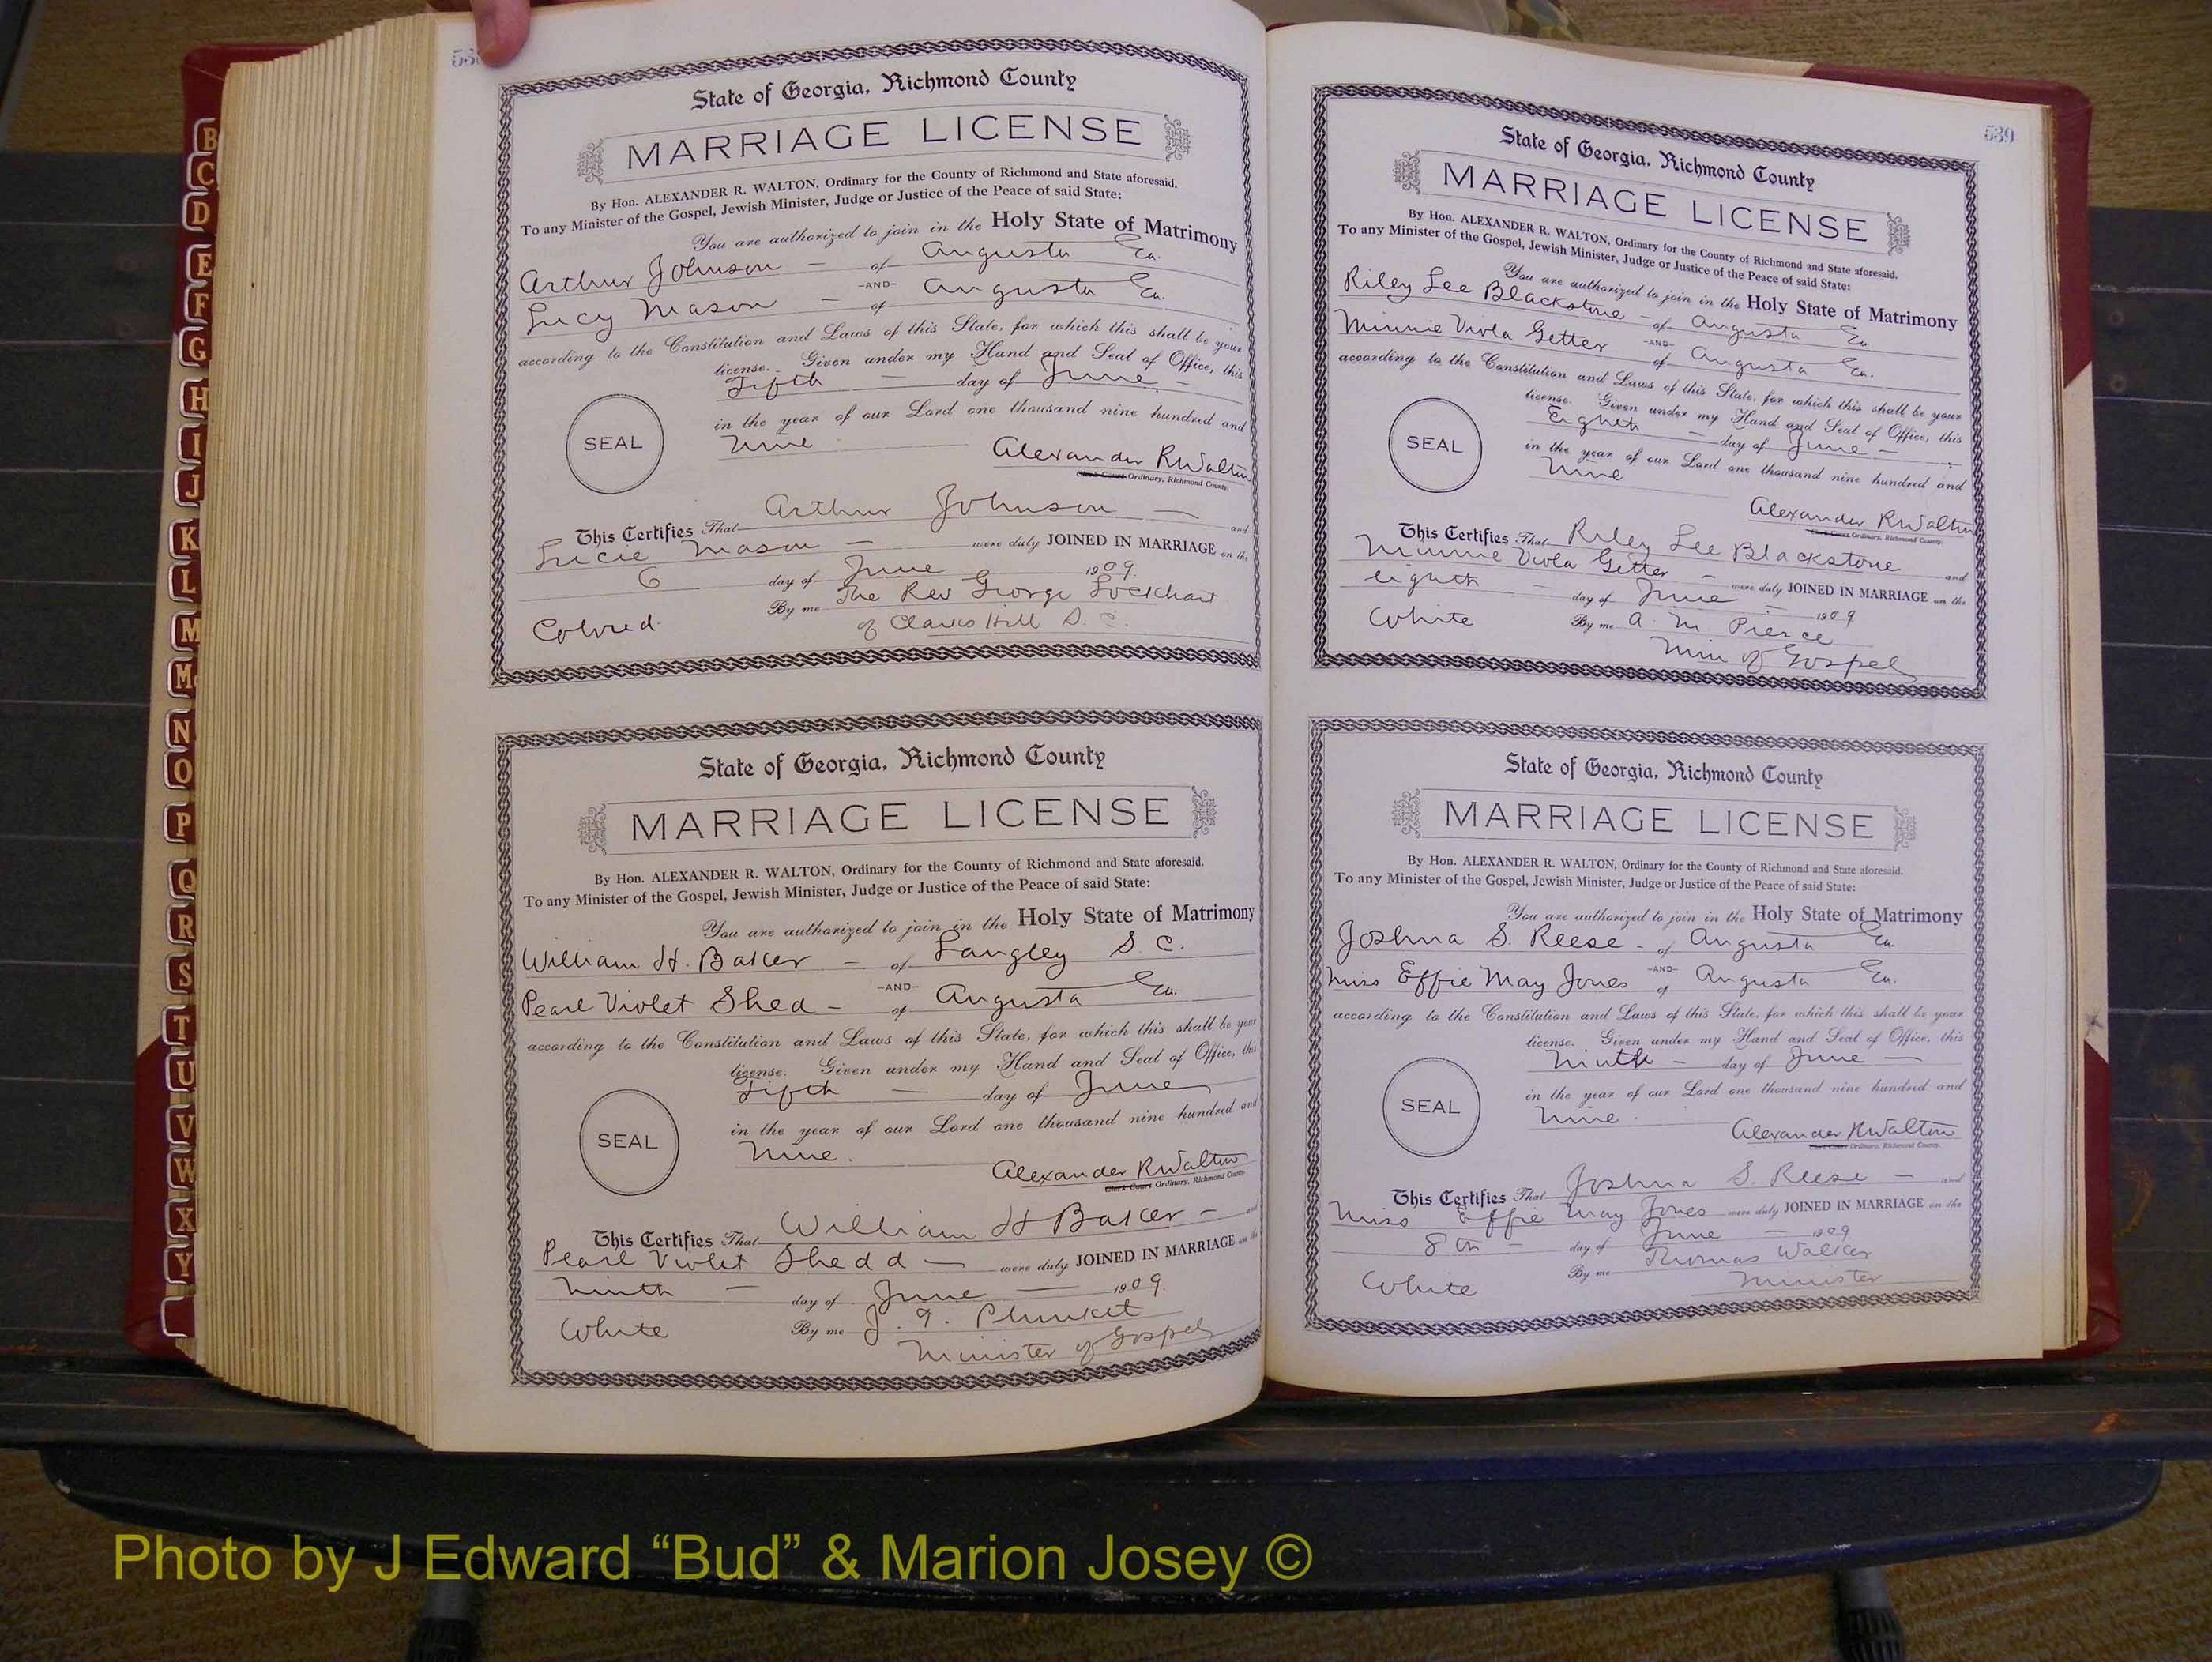 B
C
D
E
F
G
H
I
J
K
L
M
Mc
N
O
P
Q
R
S
T
U
V
W
X
Y
State of Georgia, Richmond County
MARRIAGE LICENSE
By Hon. ALEXANDER R. WALTON, Ordinary for the County of Richmond and State aforesaid.
To any Minister of the Gospel, Jewish Minister, Judge or Justice of the Peace of said State:
You are authorized to join in the Holy State of Matrimony
Arthur Johnson - of Augusta Ga.
-AND-
Lucy Mason - of Augusta Ga.
according to the Constitution and Laws of this State, for which this shall be your
license. Given under my Hand and Seal of Office, this
Fifth - day of June -
in the year of our Lord one thousand nine hundred and
SEAL
Nine
Alexander R Walton
Clerk Court Ordinary, Richmond County.
This Certifies That Arthur Johnson - and
Lucie Mason - were duly JOINED IN MARRIAGE on the
6 day of June 1909.
By me The Rev George Lockhart
Colored. of Clarks Hill S. C.
State of Georgia, Richmond County
MARRIAGE LICENSE
By Hon. ALEXANDER R. WALTON, Ordinary for the County of Richmond and State aforesaid.
To any Minister of the Gospel, Jewish Minister, Judge or Justice of the Peace of said State:
You are authorized to join in the Holy State of Matrimony
William H. Baker - of Langley S. C.
-AND-
Pearl Violet Shed - of Augusta Ga.
according to the Constitution and Laws of this State, for which this shall be your
license. Given under my Hand and Seal of Office, this
Fifth - day of June
in the year of our Lord one thousand nine hundred and
SEAL
Nine.
Alexander R Walton
Clerk Court Ordinary, Richmond County
This Certifies That William H Baker - and
Pearl Violet Shedd - were duly JOINED IN MARRIAGE on the
Ninth - day of June - 1909.
White By me J. T. Plunket
Minister of Gospel
539
State of Georgia, Richmond County
MARRIAGE LICENSE
By Hon. ALEXANDER R. WALTON, Ordinary for the County of Richmond and State aforesaid.
To any Minister of the Gospel, Jewish Minister, Judge or Justice of the Peace of said State:
You are authorized to join in the Holy State of Matrimony
Riley Lee Blackstone - of Augusta Ga.
-AND-
Minnie Viola Getter of Augusta Ga.
according to the Constitution and Laws of this State, for which this shall be your
license. Given under my Hand and Seal of Office, this
Eighth - day of June -
in the year of our Lord one thousand nine hundred and
SEAL
Nine
Alexander R Walton
Clerk Court Ordinary, Richmond County.
This Certifies That Riley Lee Blackstone and
Minnie Viola Getter - were duly JOINED IN MARRIAGE on the
eighth - day of June - 1909
White By me A. M. Pierce
Min of Gospel
State of Georgia, Richmond County
MARRIAGE LICENSE
By Hon. ALEXANDER R. WALTON, Ordinary for the County of Richmond and State aforesaid.
To any Minister of the Gospel, Jewish Minister, Judge or Justice of the Peace of said State:
You are authorized to join in the Holy State of Matrimony
Joshua S. Reese - of Augusta Ga.
-AND-
Miss Effie May Jones of Augusta Ga.
according to the Constitution and Laws of this State, for which this shall be your
license. Given under my Hand and Seal of Office, this
Ninth - day of June -
in the year of our Lord one thousand nine hundred and
SEAL
Nine.
Alexander R Walton
Clerk Court Ordinary, Richmond County.
This Certifies That Joshua S. Reese - and
Miss Effie May Jones were duly JOINED IN MARRIAGE on the
8th - day of June - 1909
By me Thomas Walker
White Minister
Photo by J Edward “Bud” & Marion Josey ©